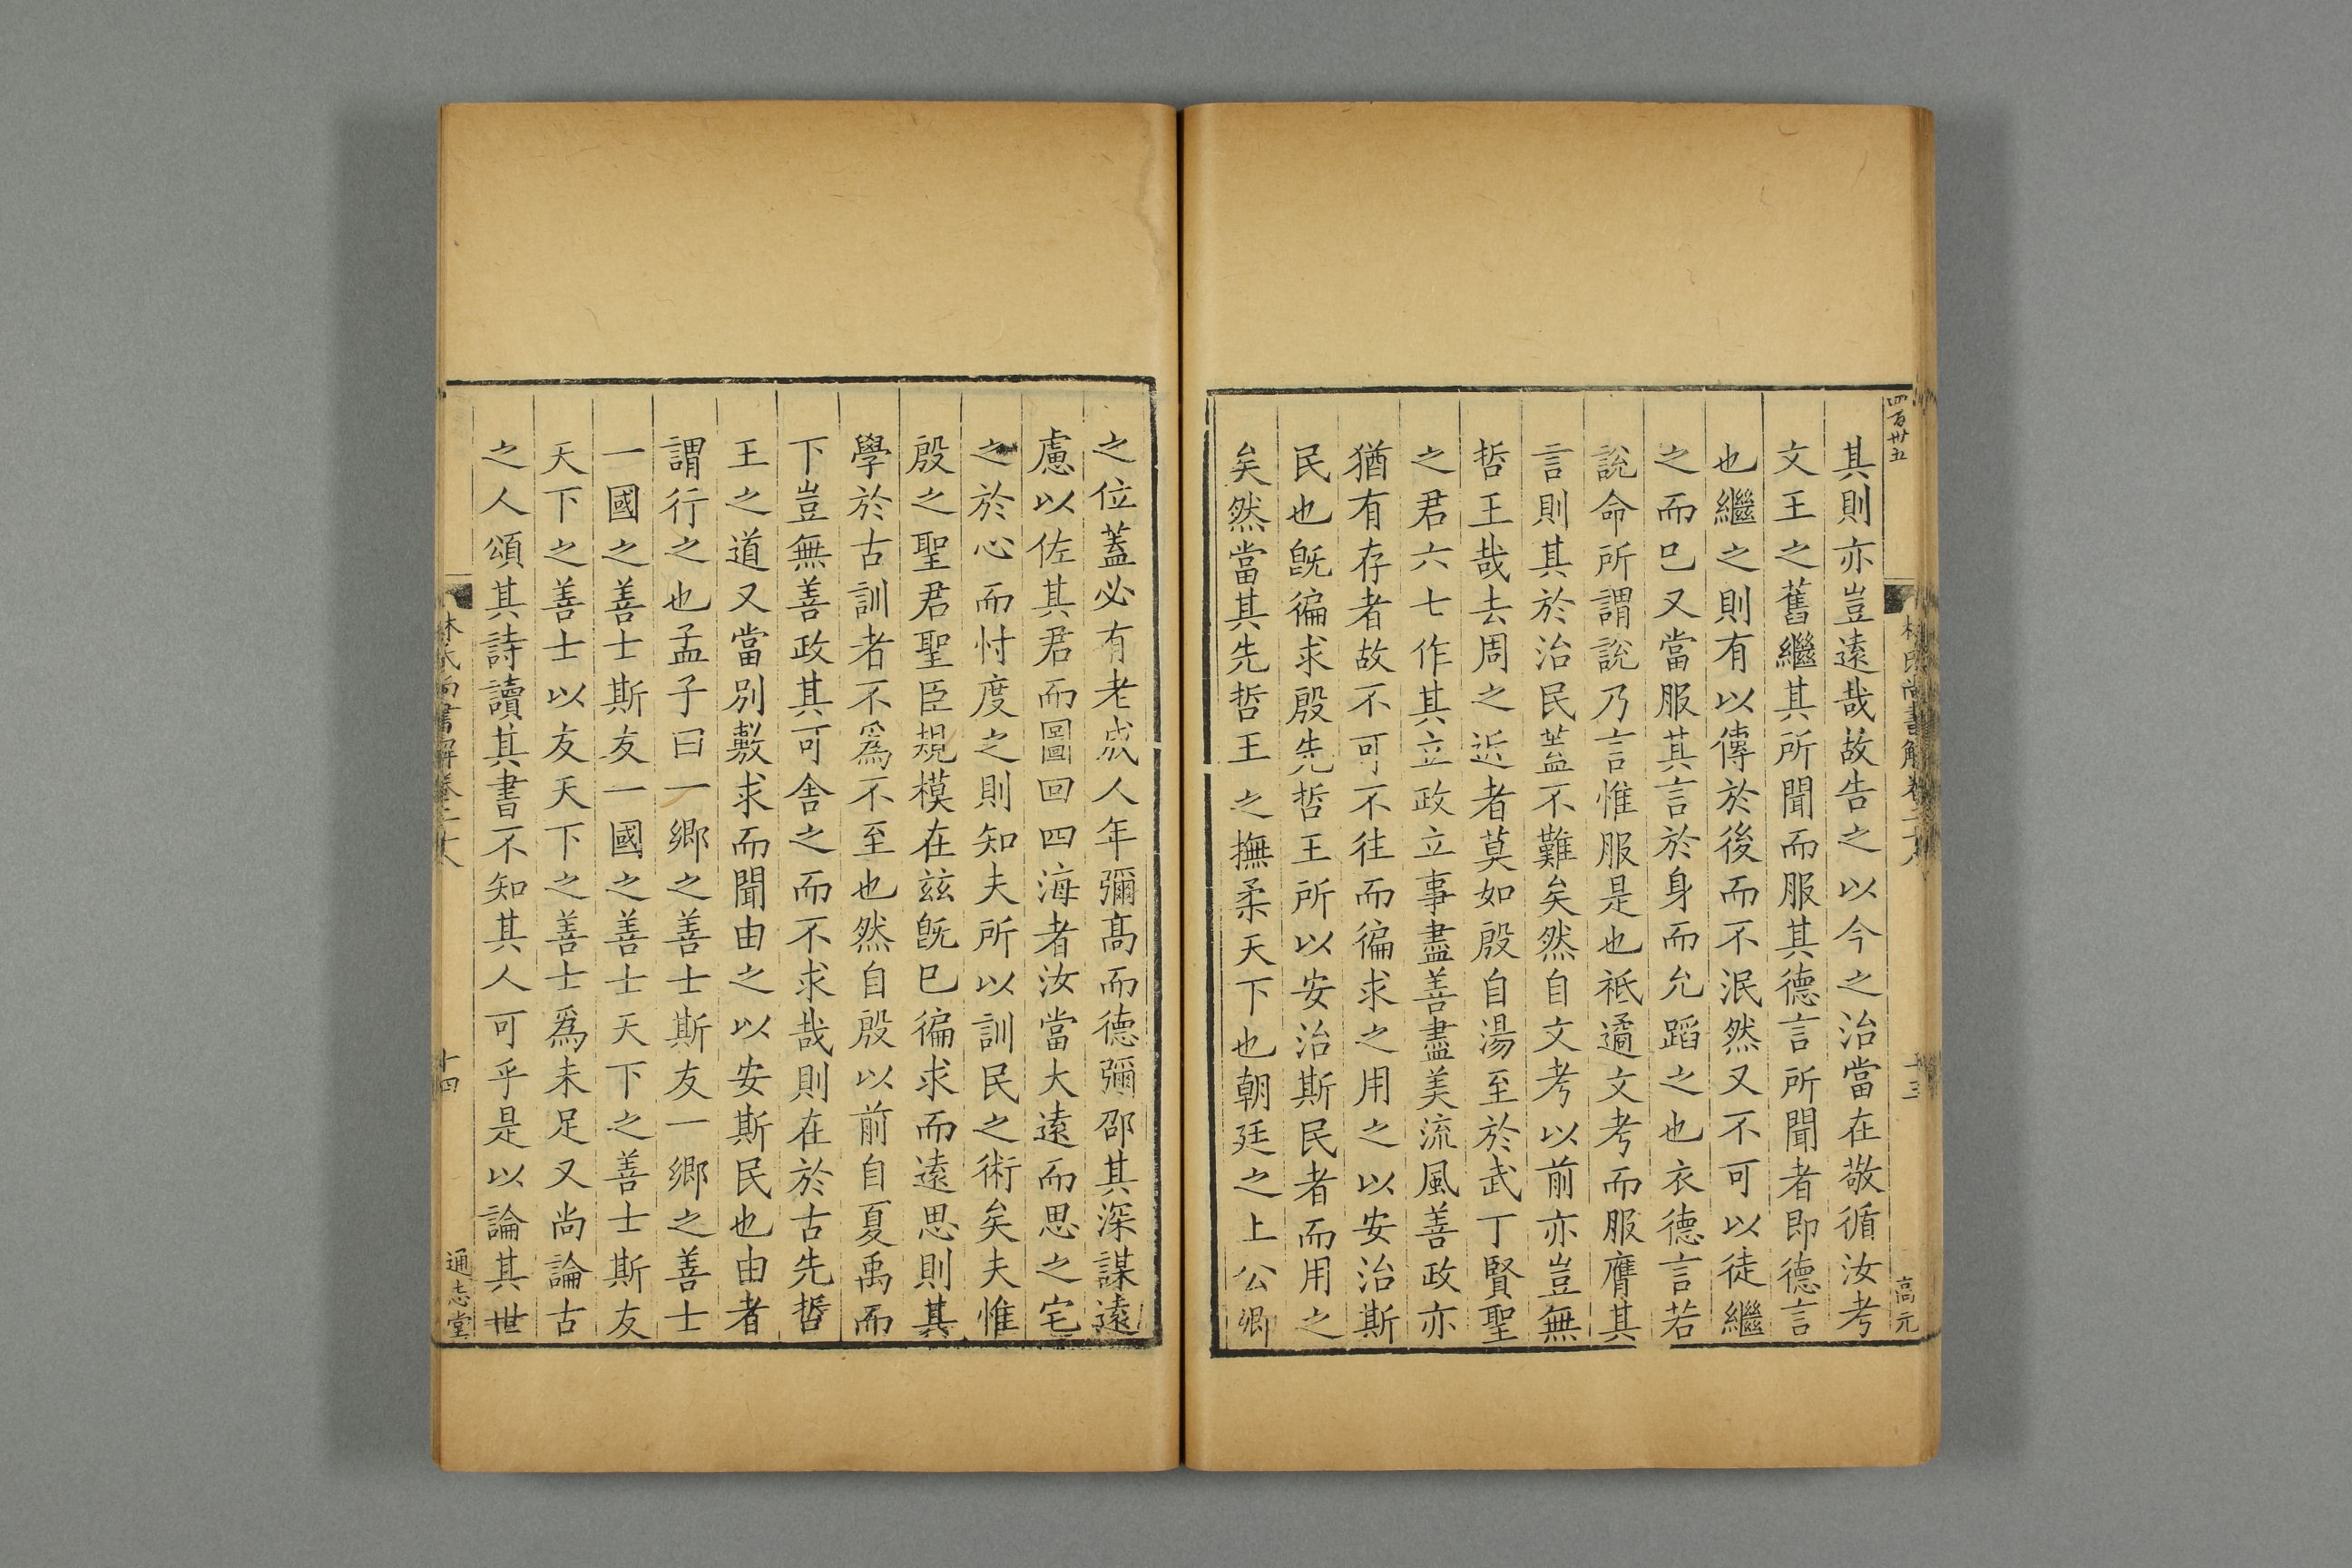 四百卅五
林氏尚書解卷二十八
十三
高元
其則亦豈遠哉故告之以今之治當在敬循汝考
文王之舊繼其所聞而服其德言所聞者即德言
也繼之則有以傳於後而不泯然又不可以徒繼
之而已又當服其言於身而允蹈之也衣德言若
說命所謂說乃言惟服是也祗遹文考而服膺其
言則其於治民蓋不難矣然自文考以前亦豈無
哲王哉去周之近者莫如殷自湯至於武丁賢聖
之君六七作其立政立事盡善盡美流風善政亦
猶有存者故不可不往而徧求之用之以安治斯
民也旣徧求殷先哲王所以安治斯民者而用之
矣然當其先哲王之撫柔天下也朝廷之上公卿
之位蓋必有老成人年彌高而德彌卲其深謀遠
慮以佐其君而圖回四海者汝當大遠而思之宅
之於心而忖度之則知夫所以訓民之術矣夫惟
殷之聖君聖臣規模在茲旣已徧求而遠思則其
學於古訓者不爲不至也然自殷以前自夏禹而
下豈無善政其可舍之而不求哉則在於古先哲
王之道又當別敷求而聞由之以安斯民也由者
謂行之也孟子曰一鄉之善士斯友一鄉之善士
一國之善士斯友一國之善士天下之善士斯友
天下之善士以友天下之善士爲未足又尚論古
之人頌其詩讀其書不知其人可乎是以論其世
林氏尚書解卷二十八
十四
通志堂